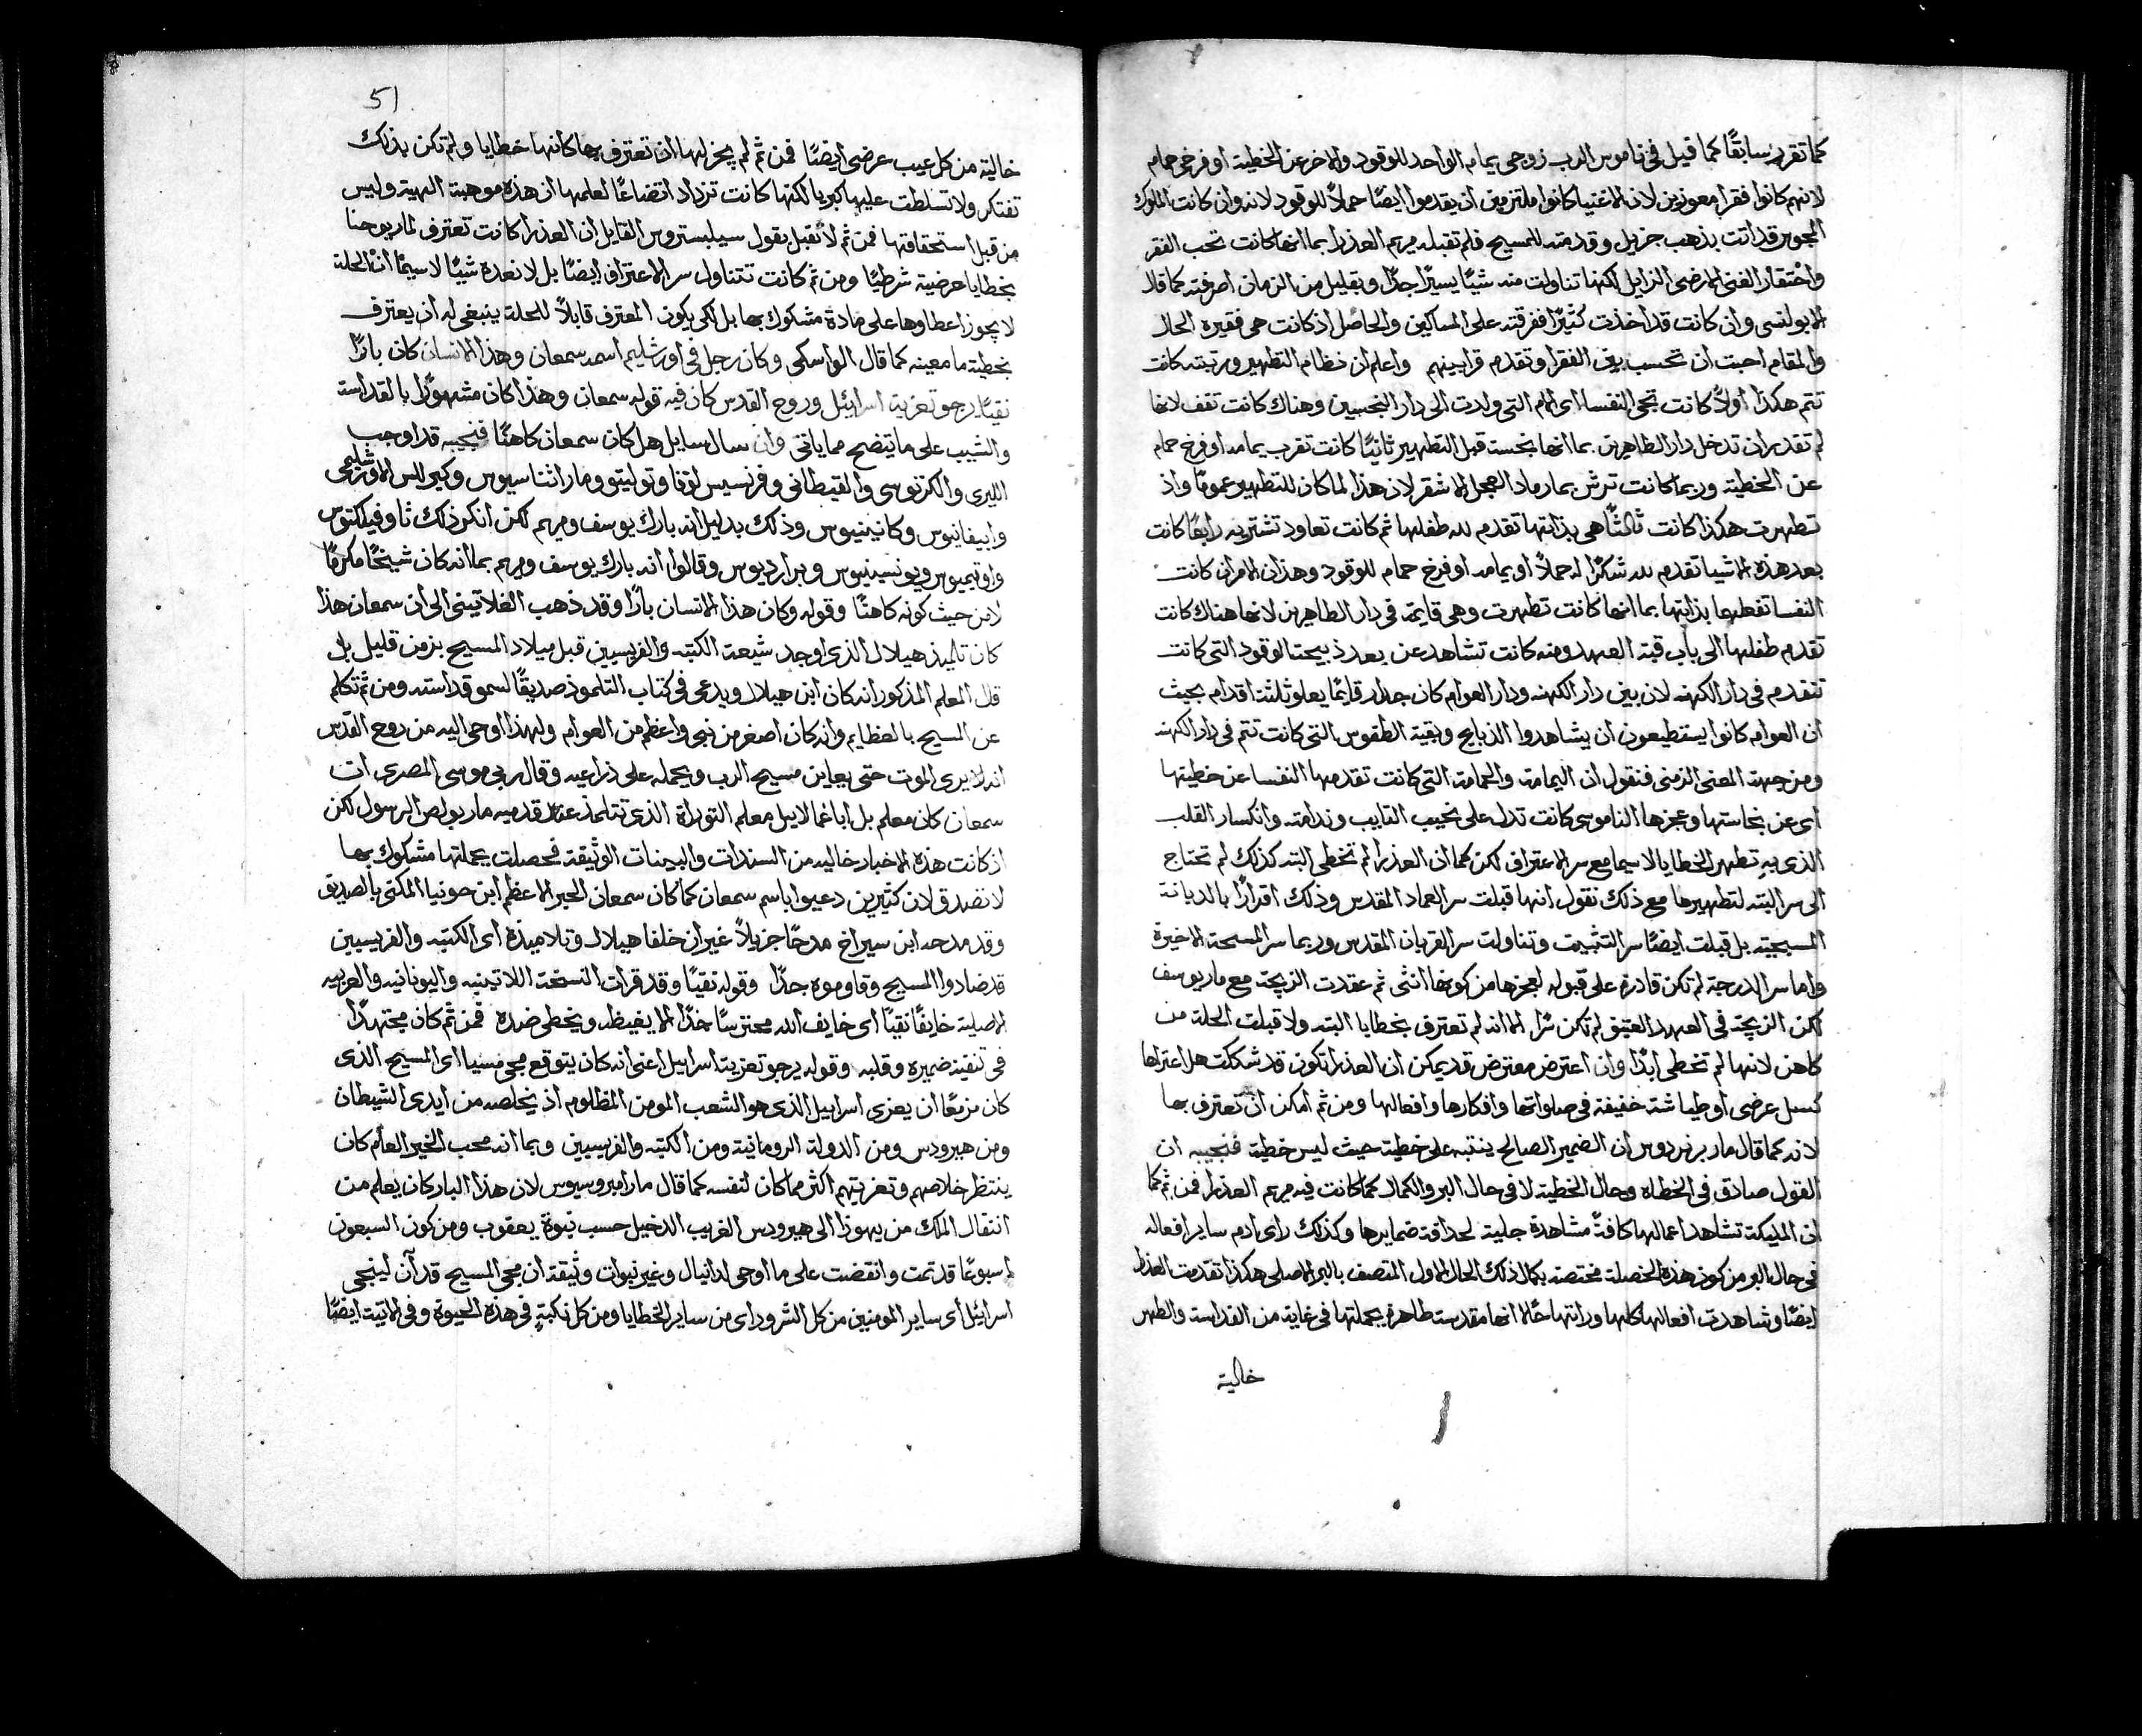 كما تقرر سابقًا كما قيل في ناموس الرب زوجي يمام الواحد للوقود والاخر عن الخطية او فرخي حمام
لانهم كانوا فقرا معوزين لان الاغنيا كانوا ملتزمين ان يقدموا ايضًا حملاً للوقود لانه وان كانت الملوك
المجوس قد اتت بذهب جزيل وقدمته للمسيح فلم تقبله مريم العذرا بما انها كانت تحب الفقر
واحتقار الغنى الارضي الزايل لكنها تناولت منه شيًا يسيرًا جدًا وبقليل من الزمان اصرفته كما قال
الابولنسي وان كانت قد اخذت كثيرًا ففرقته على المساكين والحاصل اذ كانت هي فقيرة الحال
والمقام احبت ان تحسب بين الفقرا وتقدم قرابينهم واعلم ان نظام التطهير ورتبته كانت
تتم هكذا اولاً كانت تجي النفسا اي الام التي ولدت الى دار النجسين وهناك كانت تقف لانها
لم تقدر ان تدخل دار الطاهرين بما انها نجسة قبل التطهير ثانيًا كانت تقرب يمامه او فرخ حمام
عن الخطية وربما كانت ترش بما رماد العجل الاشقر لان هذا الما كان للتطهير عمومًا واذ
تطهرت هكذا كانت ثالثًا هي بذاتها تقدم لله طفلها ثم كانت تعاود تشتريه رابعًا كانت
بعد هذه الاشيا تقدم لله شكرًا له حملاً او يمامه او فرخ حمام للوقود وهذان الامران كانت
النفسا تفعلهما بذاتها بما انها كانت تطهرت وهي قايمة في دار الطاهرين لانها هناك كانت
تقدم طفلها الى باب قبة العهد ومنه كانت تشاهد عن بعد ذبيحة الوقود التي كانت
تتقدم في دار الكهنه لان بين دار الكهنه ودار العوام كان جدار قايمًا يعلو ثلثة اقدام بحيث
ان العوام كانوا يستطيعون ان يشاهدوا الذبايح وبقية الطقوس التي كانت تتم في دار الكهنه
ومن جهة المعنى الرمزي فنقول ان اليمامة والحمامة التي كانت تقدمها النفسا عن خطيتها
اي عن نجاستها وعجزها الناموسي كانت تدل على نحيب التايب وندامته وانكسار القلب
الذي به تطهر الخطايا لاسيما مع سر الاعتراف لكن كما ان العذرا لم تخطي البته كذلك لم تحتاج
الى سر البته لتطهيرها مع ذلك نقول انها قبلت سر العماد المقدس وذلك اقرارًا بالديانة
المسيحية بل قبلت ايضًا سر التثبيت وتناولت سر القربان المقدس وربما سر المسحة الاخيرة
واما سر الدرجة لم تكن قادرة على قبوله لعجزها من كونها انثى ثم عقدت الزيجة مع مار يوسف
لكن الزيجة في العهد العتيق لم تكن سرًا الا انه لم تعترف بخطايا البته ولا قبلت الحلة من
كاهن لانها لم تخطي ابدًا وان اعترض معترض قد يمكن ان العذرا تكون قد شككت هل اعتراها
كسل عرضي او طياشة خفيفة في صلواتها وافكارها وافعالها ومن ثم امكن ان تعترف بها
لانه كما قال مار برنردوس ان الضمير الصالح ينتبه على خطية حيث ليس خطية فنجيبه ان
القول صادق في الخطاه وحال الخطية لا في حال البر والكمال كما كانت فيه مريم العذرا فمن ثم كما
ان المليكة تشاهد اعمالها كافةً مشاهدة جلية لحذاقة ضمايرها وكذلك راى ادم ساير افعاله
في حال البر من كون هذه الخصلة مختصة بكمال ذلك الحال الاول المتصف بالبر الاصلي هكذا تقدمت العذرا
ايضًا وشاهدت افعالها كلها وراتها حالا انها مقدسة طاهرة بجملتها في غاية من القداسة والطهر
خالية
51
خالية من كل عيب عرضي ايضًا فمن ثم لم يجز لها ان تعترف بها كانها خطايا ولم تكن بذلك
تفتكر ولا تسلطت عليها كبريا لكنها كانت تزداد اتضاعًا لعلمها ان هذه موهبة الهية وليس
من قبل استحقاقتها فمن ثم لا نقبل بقول سيلبستروس القايل ان العذرا كانت تعترف لمار يوحنا
بخطايا عرضية شرطيًا ومن ثم كانت تتناول سر الاعتراف ايضًا بل لا نعده شيًا لاسيما ان الحلة
لا يجوز اعطاوها على مادة مشكوك بها بل لكي يكون المعترف قابلاً للحلة ينبغي له ان يعترف
بخطية ما معينه كما قال الواسكي وكان رجل في اورشليم اسمه سمعان وهذا الانسان كان بارًا
نقيًا يرجو تعزية اسرائيل وروح القدس كان فيه قوله سمعان وهذا كان مشهورًا بالقداسة
والشيب على ما يتضح مما ياتي وان سال سايل هل كان سمعان كاهنًا فنجيبه قد اوجب
الليري والكرتوسي والقيطاني وفرنسيس لوقا وتوليتو ومار اثناسيوس وكيرللس الاورشليمي
وابيفانيوس وكانينيوس وذلك بدليل انه بارك يوسف ومريم لكن انكر ذلك ثاوفيلكتوس
واوتيميوس ويونسينيوس وبراديوس وقالوا انه بارك يوسف ومريم بما انه كان شيخًا مكرمًا
لا من حيث كونه كاهنًا وقوله وكان هذا الانسان بارًا وقد ذهب الغلاتيني الى ان سمعان هذا
كان تلميذ هيلال الذي اوجد شيعة الكتبه والفريسيين قبل ميلاد المسيح بزمن قليل بل
قال المعلم المذكور انه كان ابن هيلال ويدعى في كتاب التلموذ صديقًا لسمو قداسته ومن ثم تكلم
عن المسيح بالعظايم وانه كان اصغر من نبي واعظم من العوام ولهذا اوحي اليه من روح القدس
انه لا يرى الموت حتى يعاين مسيح الرب ويحمله على ذراعيه وقال ربي موسى المصري ان
سمعان كان معلم بل ابا غمالاييل معلم التوراة الذي تتلمذ عند قدميه مار بولص الرسول لكن
اذ كانت هذه الاخبار خاليه من السندات والبينات الوثيقة فحصلت بجملتها مشكوك بها
لا نصدق لان كثيرين دعيوا باسم سمعان كما كان سمعان الحبر الاعظم ابن حونيا المكنى بالصديق
وقد مدحه ابن سيراخ مدحًا جزيلاً غير ان خلفا هيلال وتلاميذه اي الكتبه والفريسيين
قد ضادوا المسيح وقاوموه جدًا وقوله نقيًا وقد قرات النسخة اللاتينيه واليونانيه والعربيه
الاصلية خايفًا نقيًا اي خايف الله محترسًا حذًا الا يغيظه ويخطي ضده فمن ثم كان مجتهدًا
في تنقية ضميره وقلبه وقوله يرجو تعزية اسراييل اعني انه كان يتوقع مجي مسيا اي المسيح الذي
كان مزمعًا ان يعزي اسراييل الذي هو الشعب المومن المظلوم اذ يخلصه من ايدي الشيطان
ومن هيرودس ومن الدولة الرومانية ومن الكتبه والفريسيين وبما انه محب الخير العام كان
ينتظر خلاصهم وتعزيتهم اكثر مما كان لنفسه كما قال مار امبروسيوس لان هذا البار كان يعلم من
انتقال الملك من يهوذا الى هيرودس الغريب الدخيل حسب نبوة يعقوب ومن كون السبعون
اسبوعًا قد تمت وانقضت على ما اوحي لدانيال وغير نبوات وثيقة ان مجي المسيح قد آن لينجي
اسرائيل اي ساير المومنين من كل الشرور اي من ساير الخطايا ومن كل نكبةٍ في هذه الحيوة وفي الاتية ايضًا